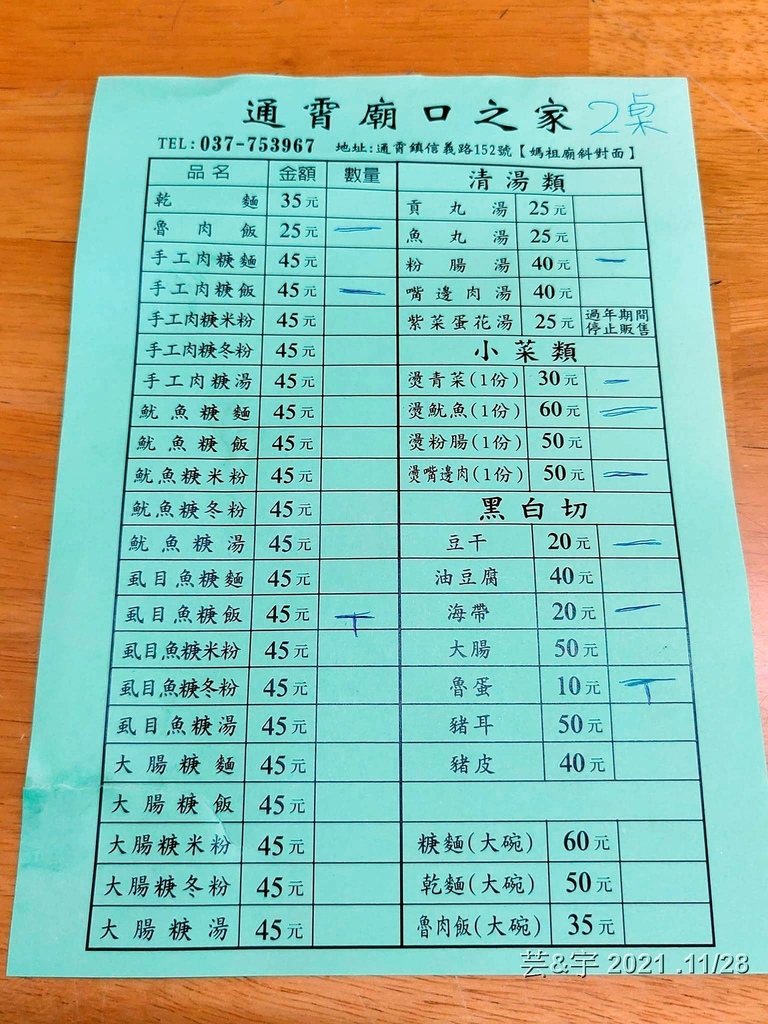 通霄廟口之家 2桌
TEL:037-753967 地址:通霄鎮信義路152號【媽祖廟斜對面】
品名 金額 數量
乾麵 35元
魯肉飯 25元 一
手工肉糖麵 45元
手工肉糖飯 45元 一
手工肉糖米粉 45元
手工肉糖冬粉 45元
手工肉糖湯 45元
魷魚糖麵 45元
魷魚糖飯 45元
魷魚糖米粉 45元
魷魚糖冬粉 45元
魷魚糖湯 45元
虱目魚糖麵 45元
虱目魚糖飯 45元 丅
虱目魚糖米粉 45元
虱目魚糖冬粉 45元
虱目魚糖湯 45元
大腸糖麵 45元
大腸糖飯 45元
大腸糖米粉 45元
大腸糖冬粉 45元
大腸糖湯 45元
清湯類
貢丸湯 25元
魚丸湯 25元
粉腸湯 40元 一
嘴邊肉湯 40元
紫菜蛋花湯 25元 過年期間
停止販售
小菜類
燙青菜(1份) 30元 一
燙魷魚(1份) 60元 一
燙粉腸(1份) 50元
燙嘴邊肉(1份) 50元 一
黑白切
豆干 20元 一
油豆腐 40元
海帶 20元 一
大腸 50元
魯蛋 10元 丅
豬耳 50元
豬皮 40元
糖麵(大碗) 60元
乾麵(大碗) 50元
魯肉飯(大碗) 35元
芸&宇 2021 .11/28